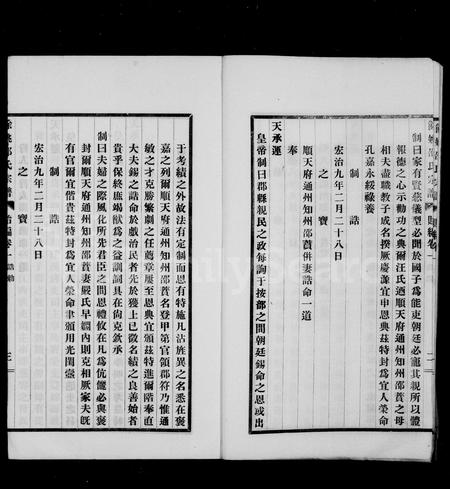 制曰家有賢慈儀型必聞於國子爲能吏朝廷必寵其親所以體
報德之心示勸功之典爾汪氏迺順天府通州知州邵蕡之母
相夫盡職教子成名揆厥慶源宜申恩典茲特封爲宜人榮命
孔嘉永綏祿養
制誥
宏治九年二月二十八日
之寶
順天府通州知州邵蕡併妻誥命一道
奉
天承運
皇帝制曰郡縣親民之政每詢于按部之間朝廷錫命之恩或出
二
于考績之外故法有定制而恩有特施凡沾旌異之名悉在褒
嘉之列爾順天府通州知州邵蕡名登甲第官領郡符乃惟通
敏之才克勝繁劇之任薦章屢至恩典宜頒茲特進爾階奉直
大夫錫之誥命於戲治民者先於獲上已徵名績之良善始者
貴乎保終應竭猷爲之益訓詞具在尙克欽承
制曰夫婦之際風化所先君臣之間恩禮攸在凡爲伉儷必與褒
封爾順天府通州知州邵蕡妻嚴氏早嫻內則克相厥家夫旣
有官爾宜偕貴茲特封爲宜人榮命聿頒用光閨壼
制誥
宏治九年二月二十八日
之寶
餘姚邵氏宗譜
貽編卷一 誥勅
三